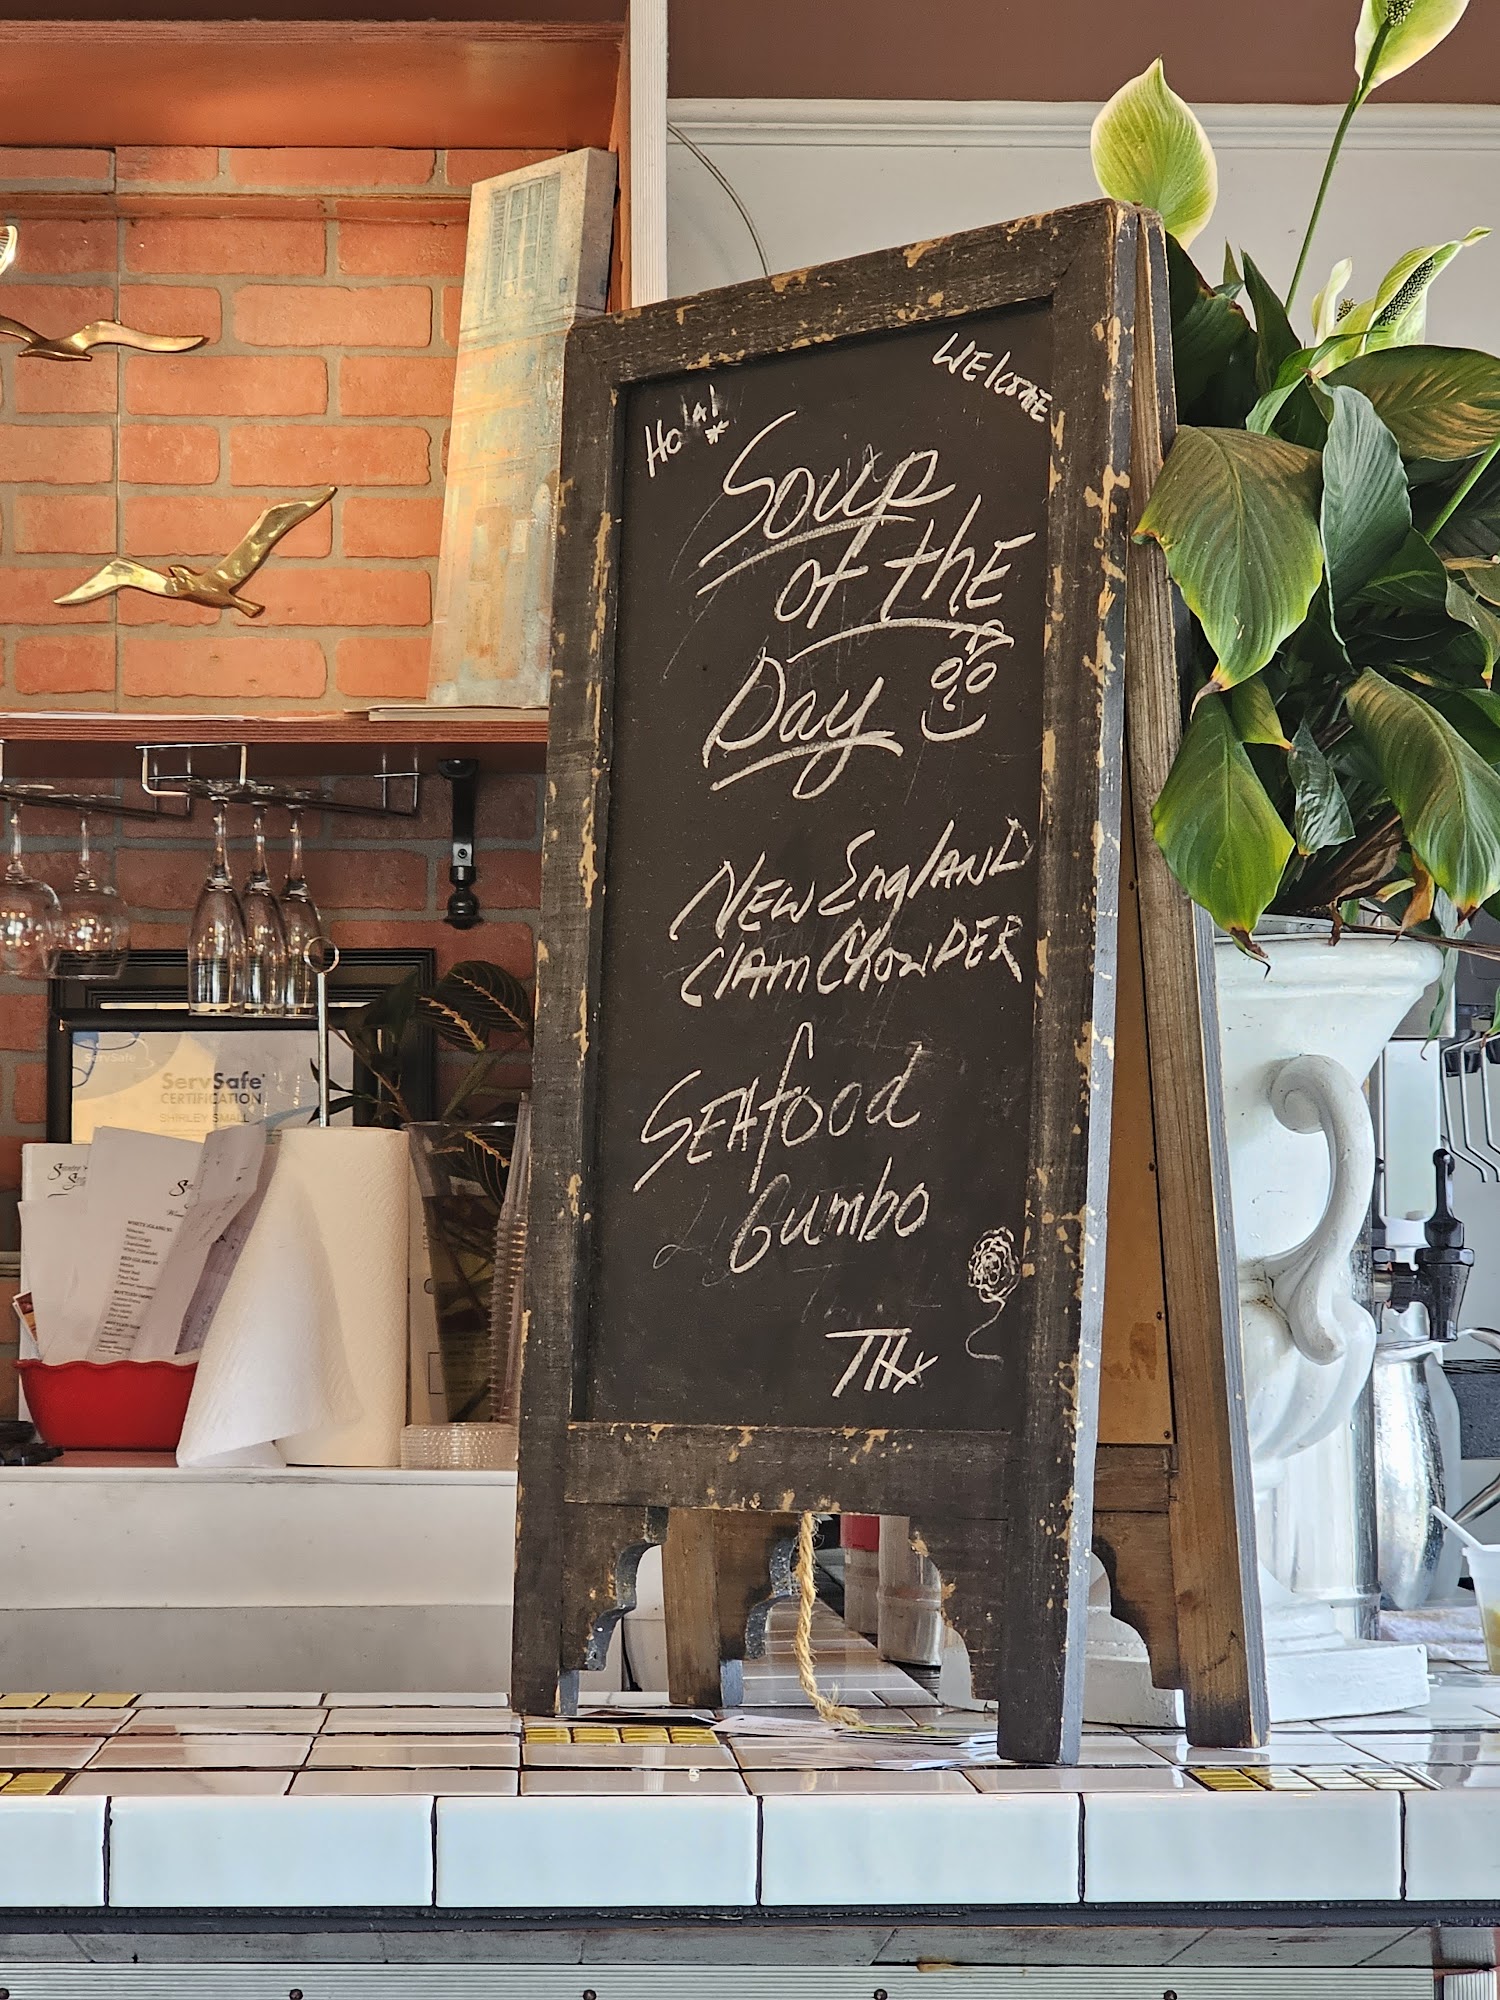 Hola!
WElcomE
Soup
of thE
Day
NEw EnglAND
ClAm ChowDER
SEAfood
Gumbo
THx
ServSafe
ServSafe
CERTIFICATION
SHIRLEY SMALL